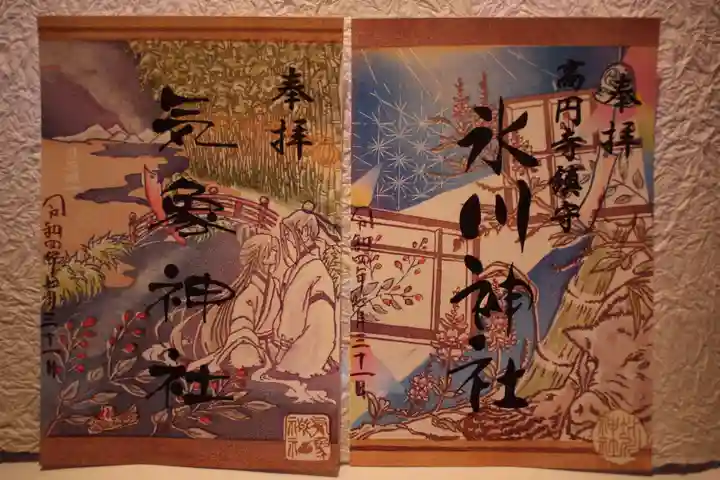 奉拝
気象神社
令和四年七月三十一日
奉拝
高円寺鎮守
氷川神社
令和四年七月三十一日